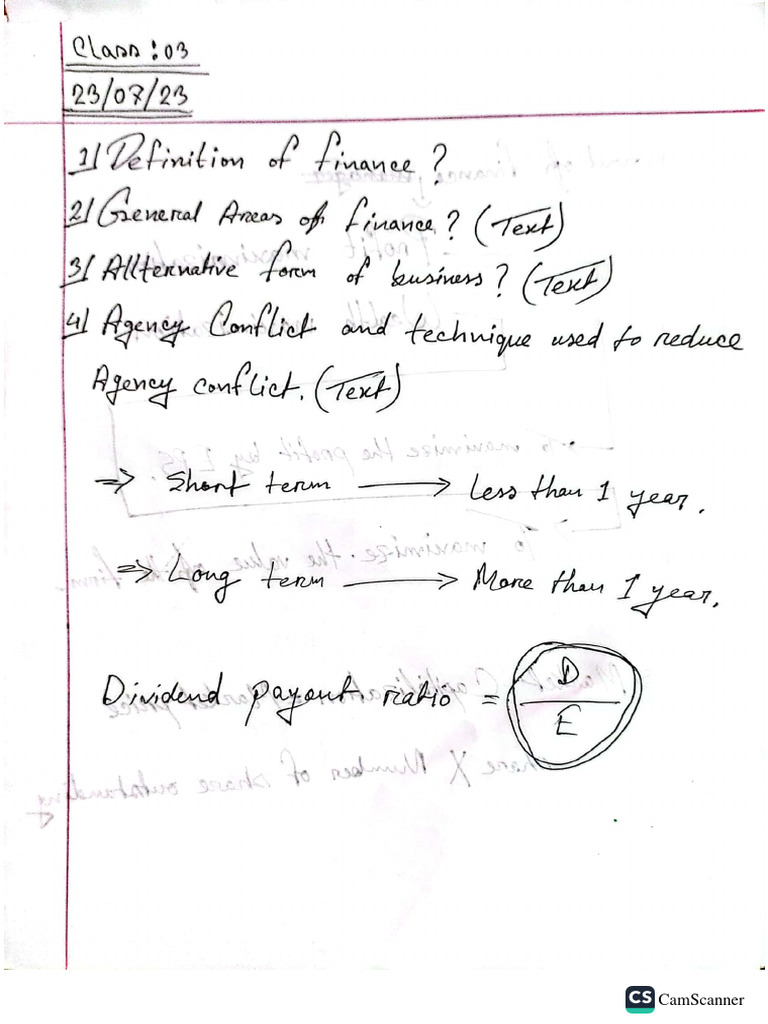 Class: 03
23/07/23
1/ Definition of finance?
2/ General Areas of finance? (Text)
3/ Allternative form of business? (Text)
4/ Agency Conflict and technique used to reduce
Agency conflict. (Text)
⇒ Short term → Less than 1 year.
⇒ Long term → More than 1 year.
Dividend payout ratio = D
E
CS CamScanner